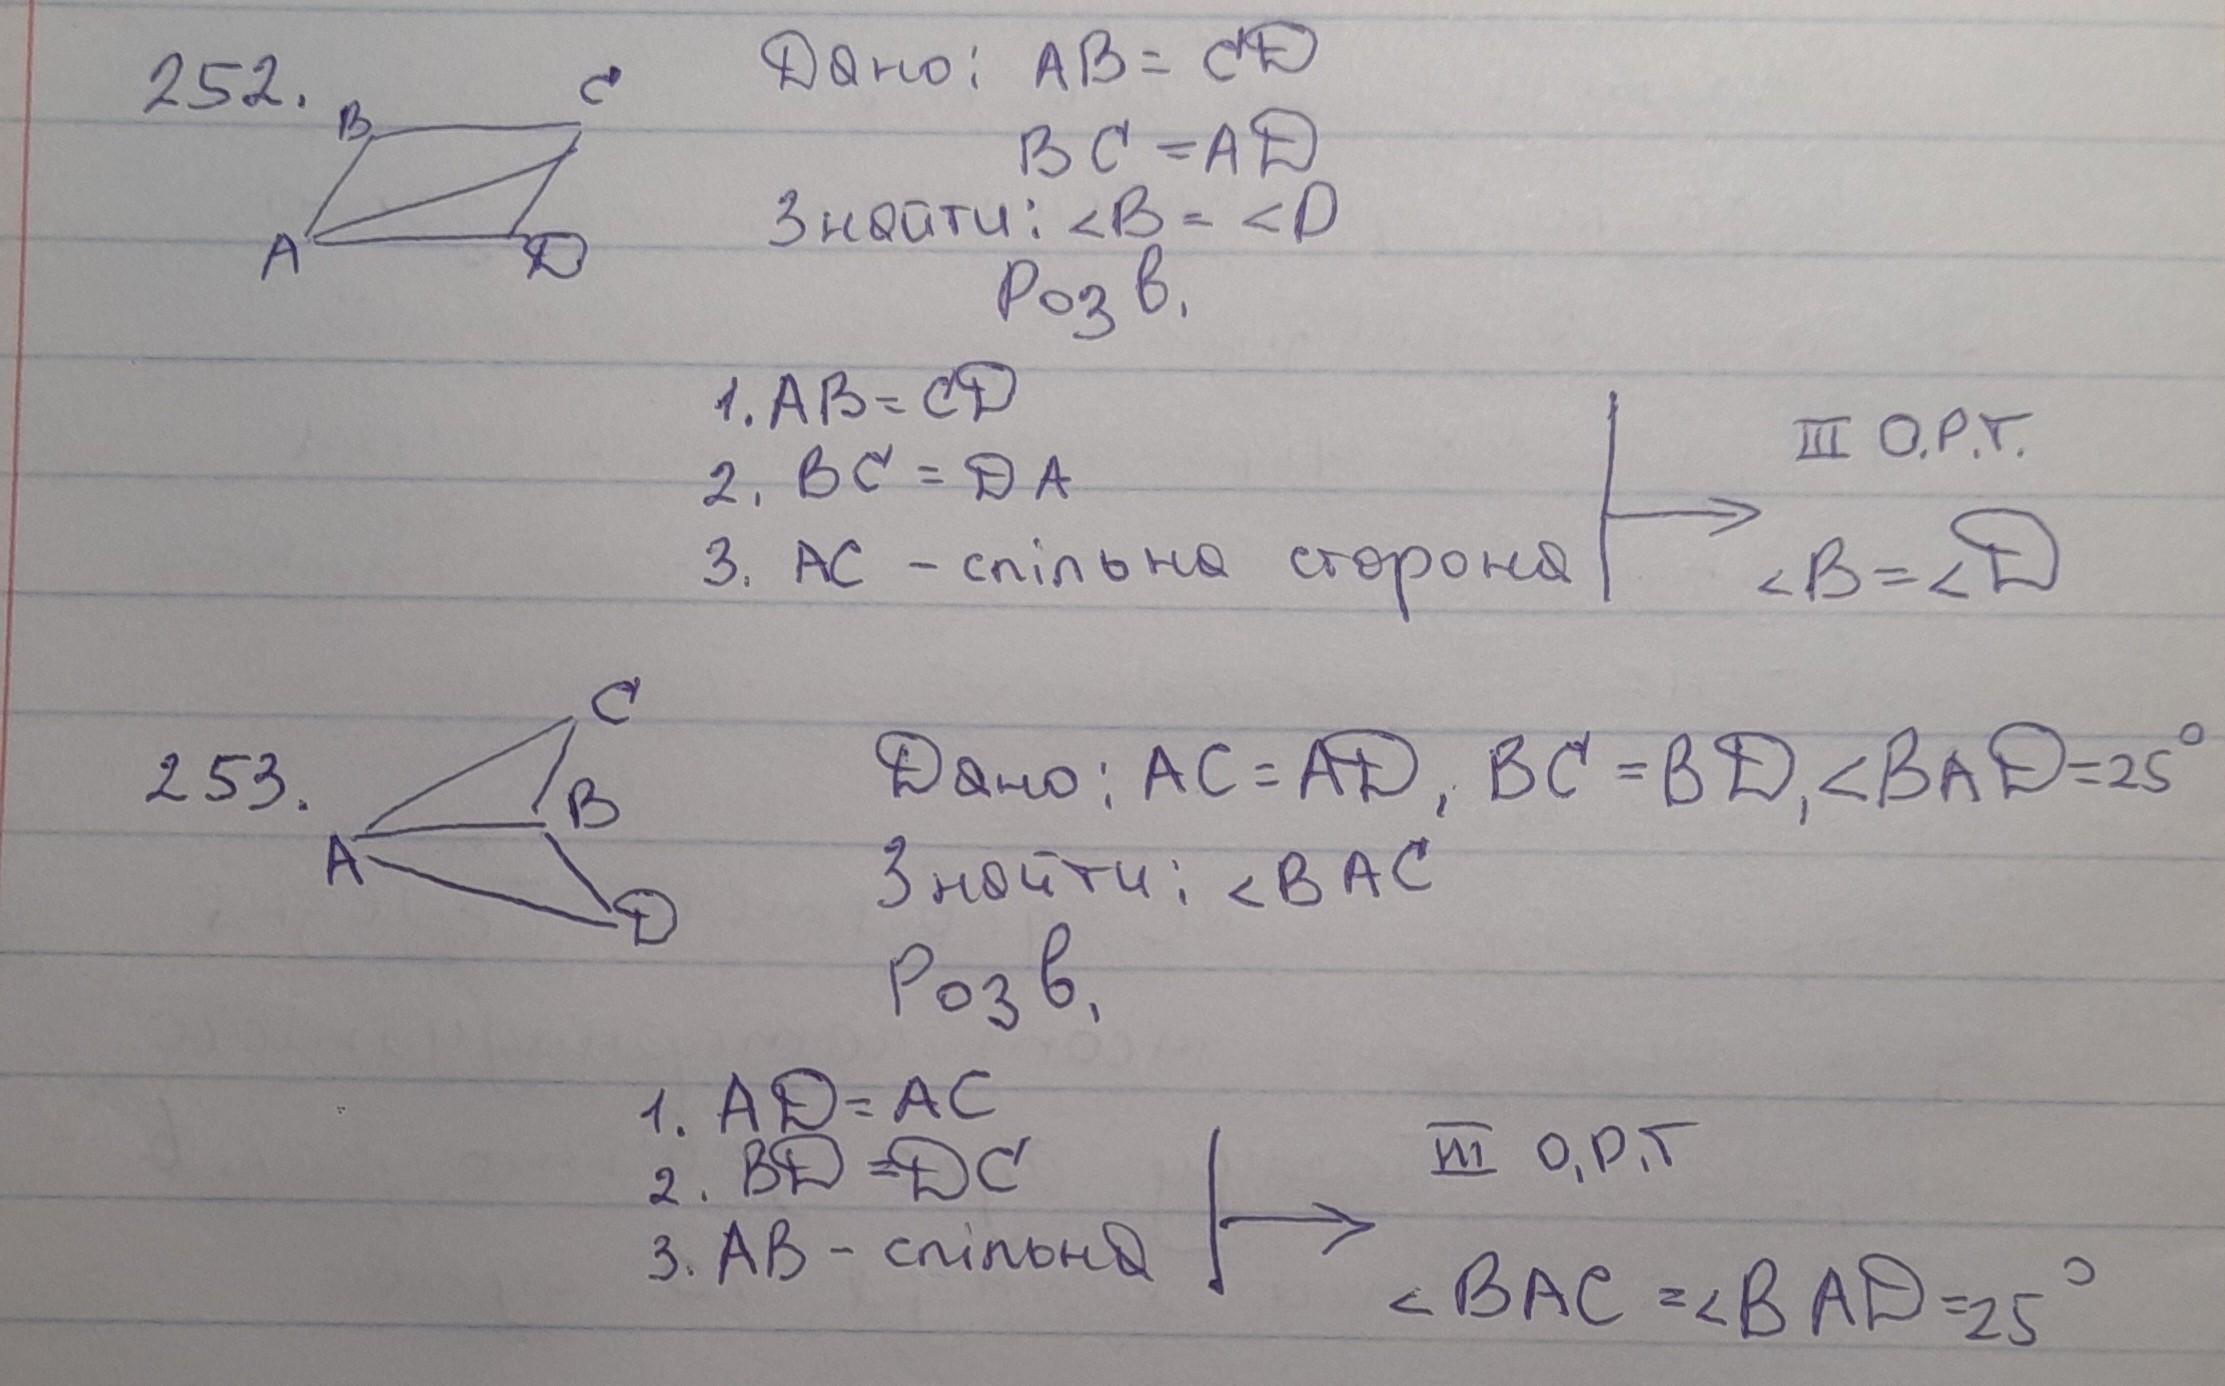 252.
B C
A D
Дано: AB = CD
BC = AD
Знайти: <B = <D
Розв.
1. AB = CD
2. BC = DA
3. AC - спільна сторона
III О.Р.Т.
<B = <D
253.
C
B
A
D
Дано: AC = AD, BC = BD, <BAD = 25°
Знайти: <BAC
Розв.
1. AD = AC
2. BD = DC
3. AB - спільна
III О.Р.Т
<BAC = <BAD = 25°